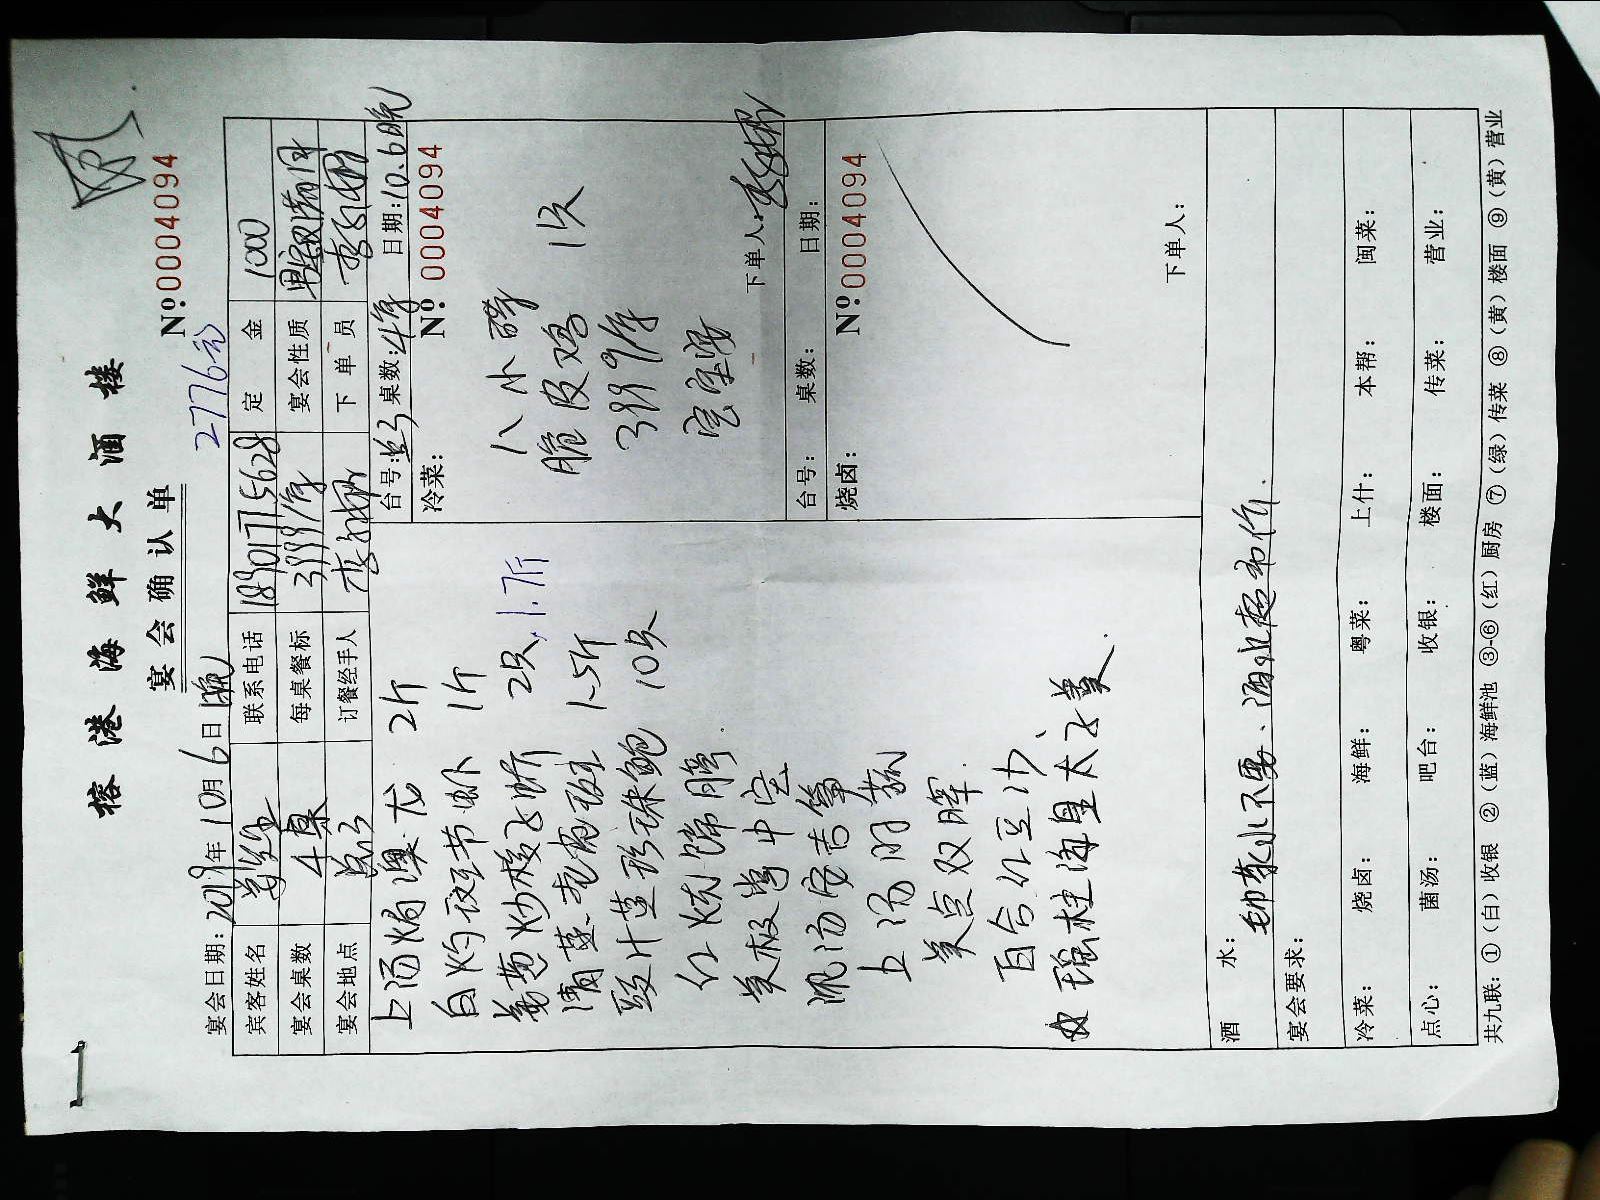 榕港海鲜大酒楼
宴会确认单
№:0004094
2776
宴会日期:2019年10月6日 晚
联系电话 18901715628 定金 1000
宾客姓名
宴会桌数 4桌 每桌餐标 3999/席 宴会性质
宴会地点 订餐经手人 下单员
台号: 桌数:4席 日期:10.6晚
冷菜: №:0004094
上汤焗澳龙 2斤
白灼斑节虾 1斤
姜葱炒梭子蟹 2只 1.7斤
清蒸老虎斑 1.5斤
豉汁蒸珍珠鲍 10只
红烧蹄膀
上汤时蔬
美点双辉
百合红豆沙
瑶柱海皇太子羹
八小碟
脆皮鸡 1只
3999/席
下单人:
台号: 桌数: 日期:
烧卤: №:0004094
下单人:
酒水: 酒水超市价.
宴会要求:
冷菜: 烧卤: 海鲜: 粤菜: 上什: 本帮: 闽菜:
点心: 菌汤: 吧台: 收银: 楼面: 传菜: 营业:
共九联:①(白)收银 ②(蓝)海鲜池 ③-⑥(红)厨房 ⑦(绿)传菜 ⑧(黄)楼面 ⑨(黄)营业